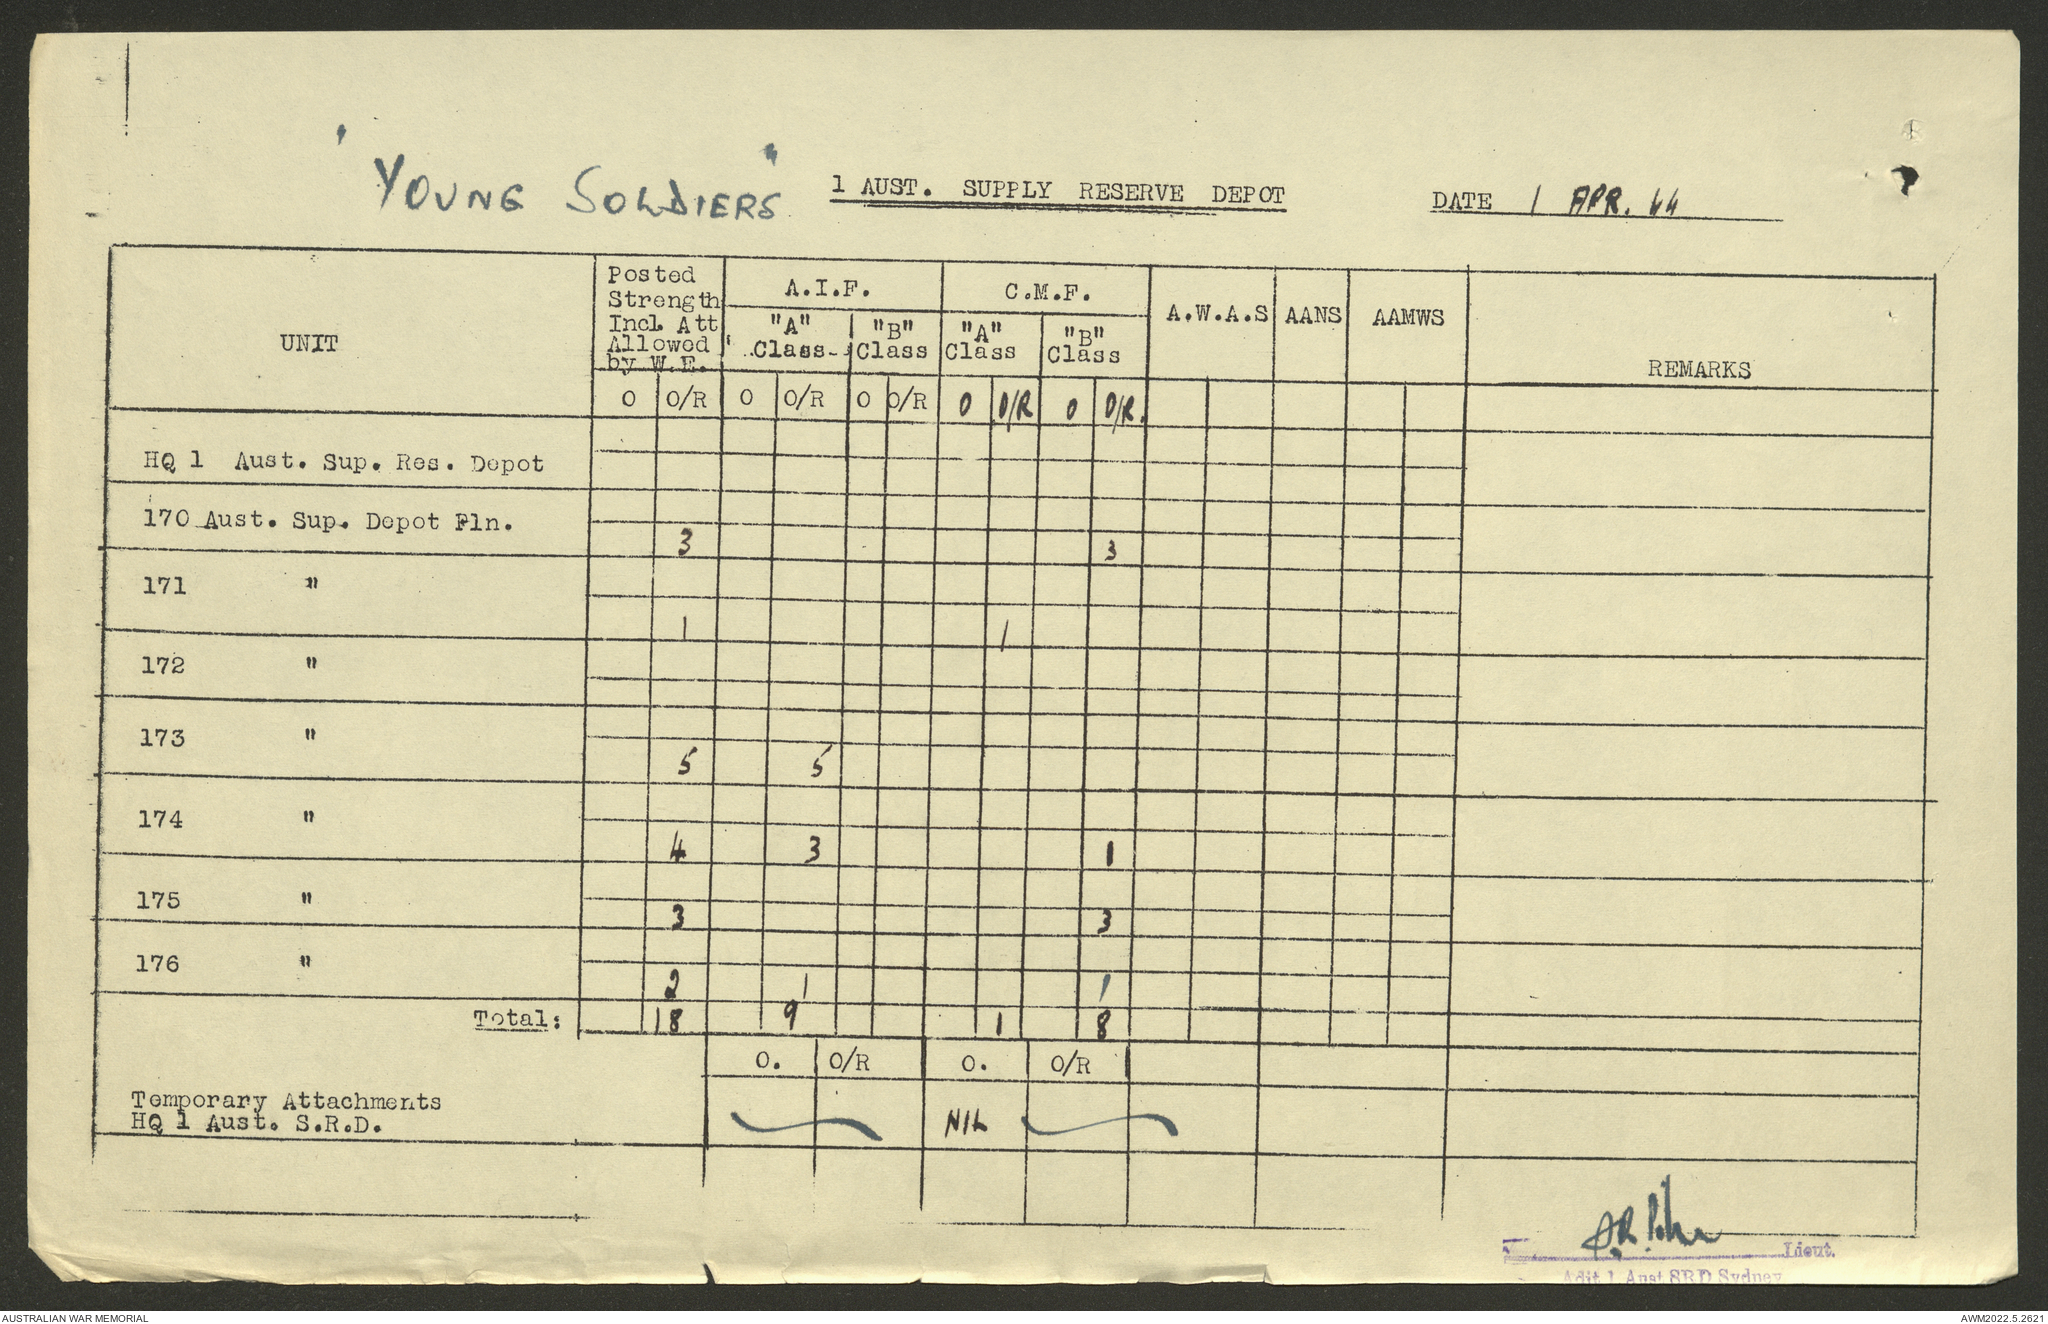 "YOUNG SOLDIERS"
1 AUST. SUPPLY RESERVE DEPOT
DATE 1 APR. 44
UNIT
Posted
Strength
Incl. Att
Allowed
by W.E.
A.I.F.
C.M.F.
A.W.A.S
AANS
AAMWS
REMARKS
"A"
Class
"B"
Class
"A"
Class
"B"
Class
O O/R O O/R O O/R O O/R O O/R.
HQ 1 Aust. Sup. Res. Depot
170 Aust. Sup. Depot Pln.
3 3
171 "
1 1
172 "
173 "
5 5
174 "
4 3 1
175 "
3 3
176 "
2 1 1
Total: 18 9 1 8
O. O/R O. O/R
Temporary Attachments
HQ 1 Aust. S.R.D.
NIL
Lieut.
Adjt 1 Aust SRD Sydney
AUSTRALIAN WAR MEMORIAL
AWM2022.5.2621